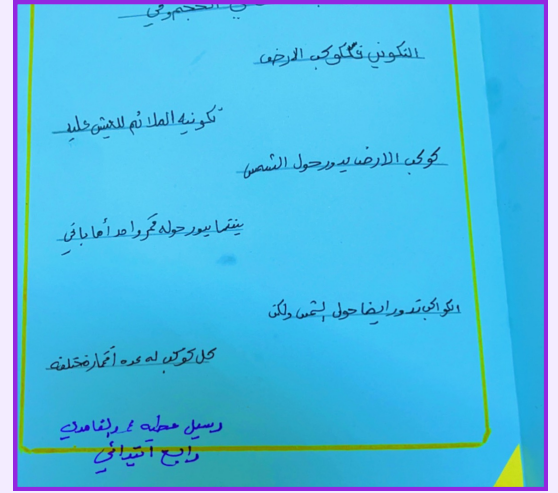 الحجم وفي
التكوين فكوكب الارض
تكونيه الملائم للعيش عليه
كوكب الارض يدور حول الشمس
بينما يدور حوله قمر واحد أما باقي
الكواكب تدور ايضا حول الشمس ولكن
كل كوكب له عده أقمار مختلفه
عطيه الغامدي
رابع ابتدائي